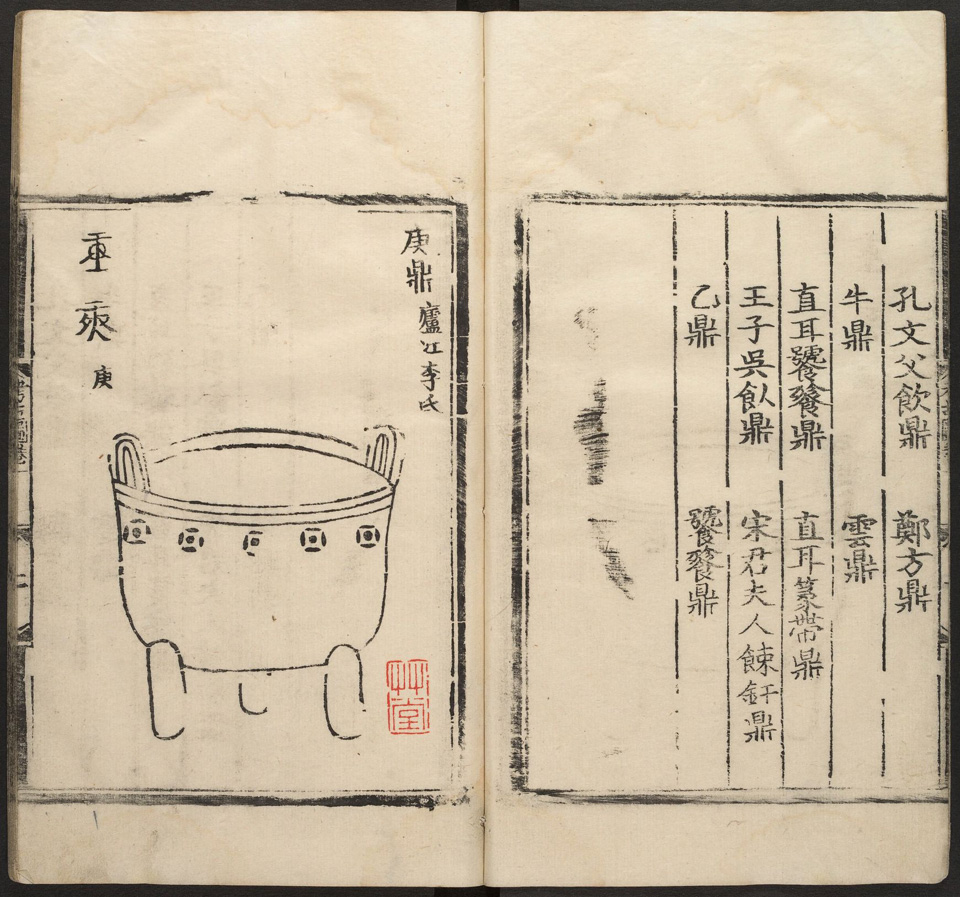 孔文父飲鼎　鄭方鼎
牛鼎　雲鼎
直耳饕餮鼎　直耳篆帶鼎
王子吳飤鼎　宋君夫人餗釪鼎
乙鼎　饕餮鼎
庚鼎 廬江李氏
庚
艸堂